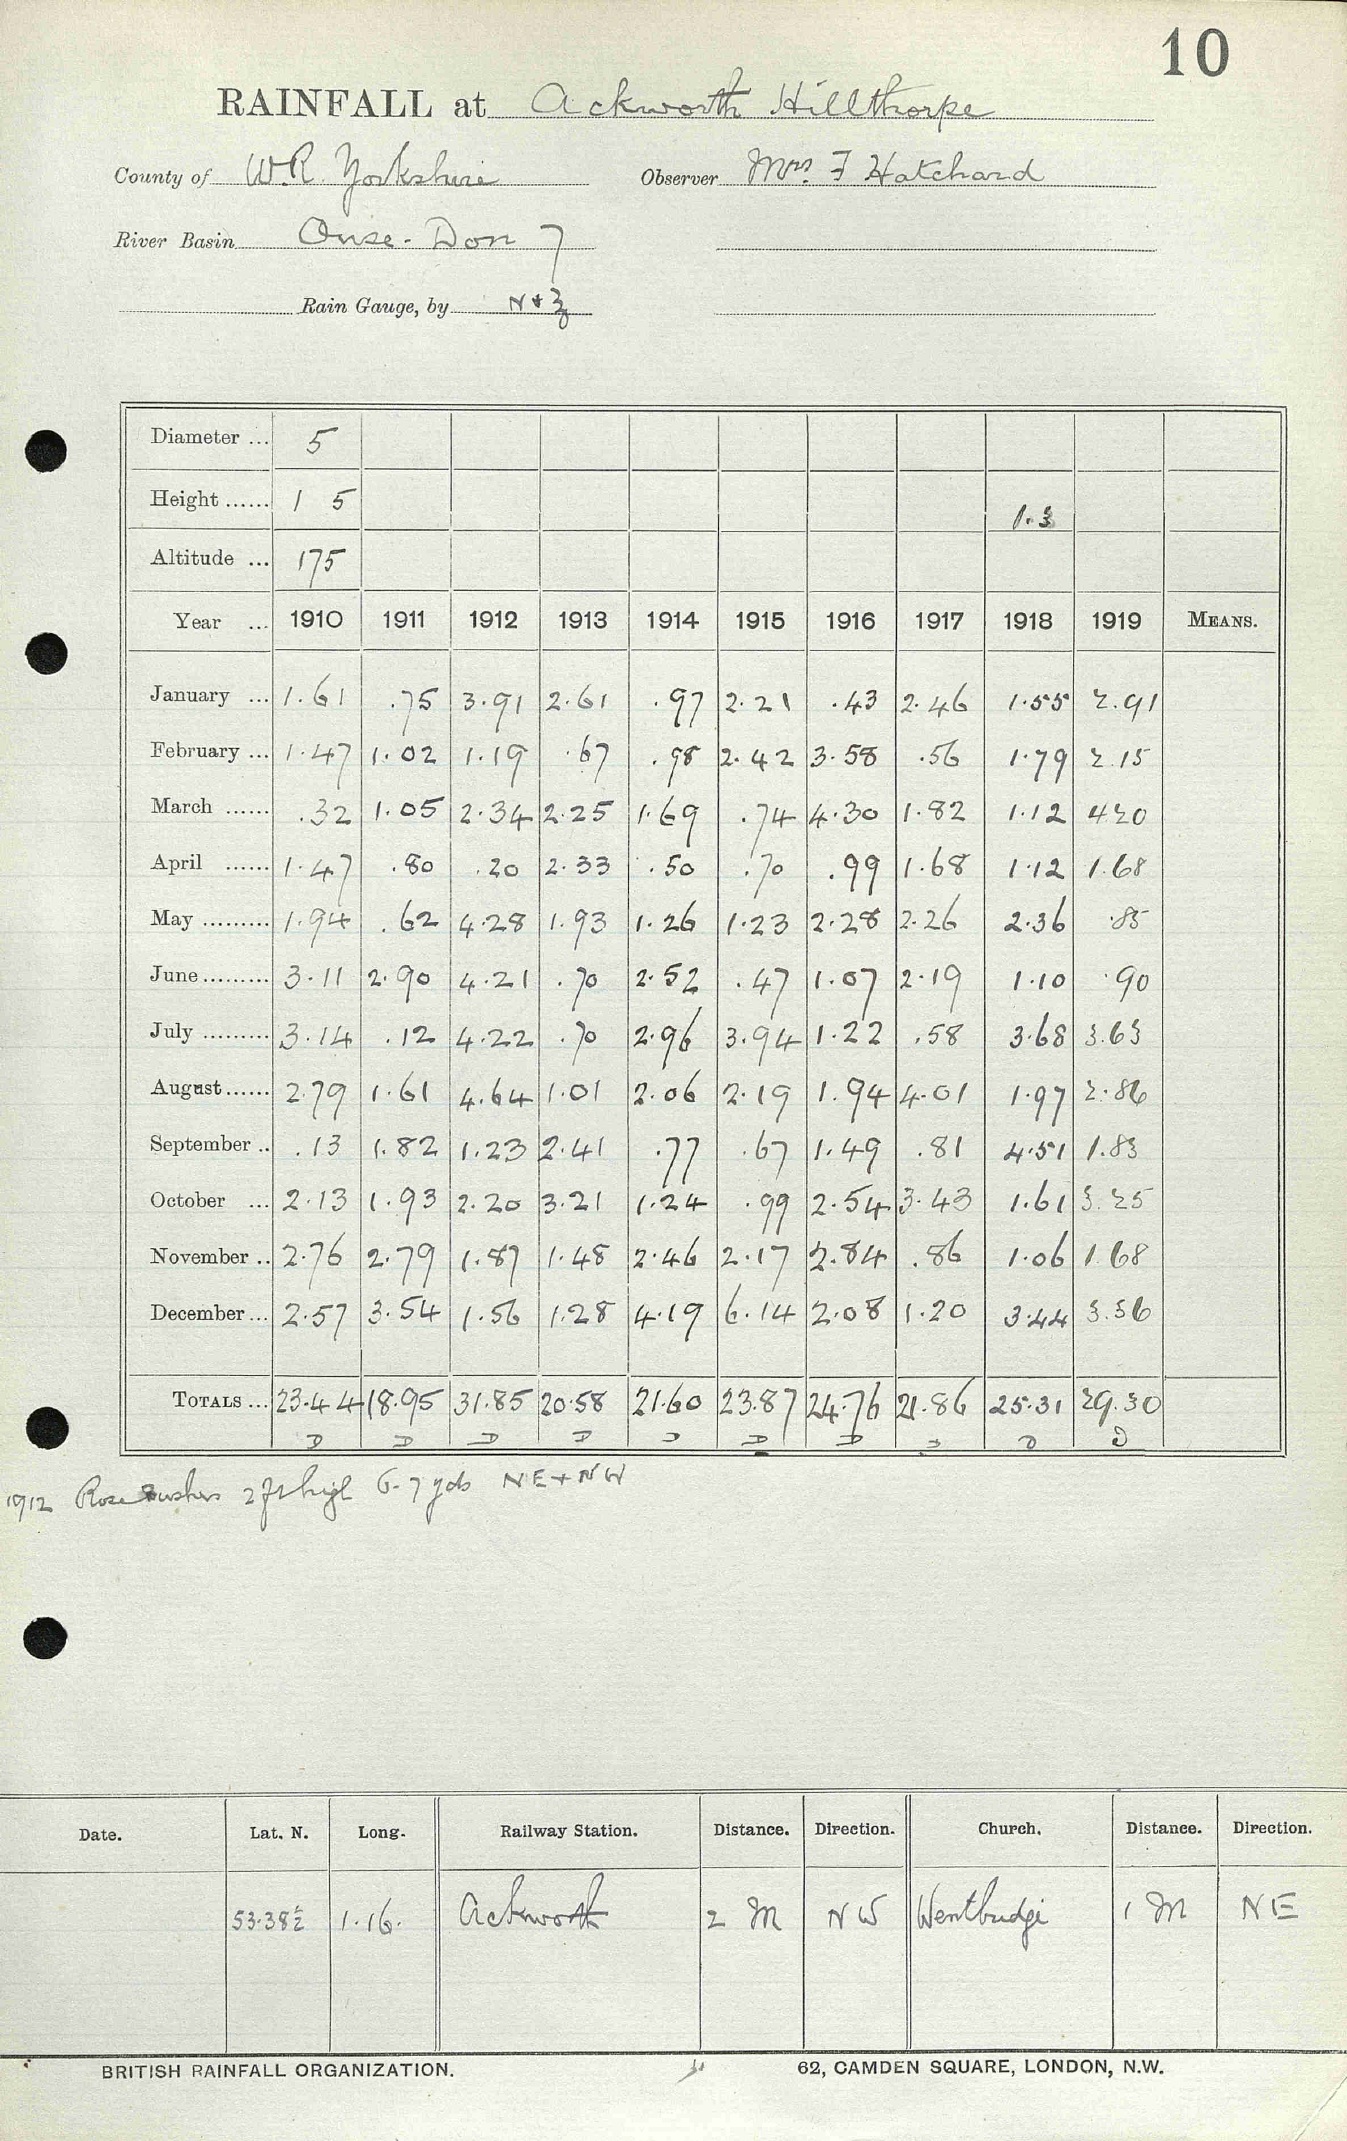 10
RAINFALL at Ackworth Hillthorpe
County of W.R. Yorkshire Observer Mrs. F Hatchard
River Basin Ouse - Don 7
Rain Gauge, by N + Z
Diameter ... 5
Height ...... 1 5 1.3
Altitude ... 175
Year ... 1910 1911 1912 1913 1914 1915 1916 1917 1918 1919 MEANS.
January ... 1.61 .75 3.91 2.61 .97 2.21 .43 2.46 1.55 2.91
February ... 1.47 1.02 1.19 .67 .98 2.42 3.58 .56 1.79 2.15
March ...... .32 1.05 2.34 2.25 1.69 .74 4.30 1.82 1.12 4 20
April ...... 1.47 .80 .20 2.33 .50 .70 .99 1.68 1.12 1.68
May ......... 1.94 .62 4.28 1.93 1.26 1.23 2.28 2.26 2.36 .85
June ......... 3.11 2.90 4.21 .70 2.52 .47 1.07 2.19 1.10 .90
July ......... 3.14 .12 4.22 .70 2.96 3.94 1.22 .58 3.68 3.63
August ...... 2.79 1.61 4.64 1.01 2.06 2.19 1.94 4.01 1.97 2.86
September .. .13 1.82 1.23 2.41 .77 .67 1.49 .81 4.51 1.83
October ... 2.13 1.93 2.20 3.21 1.24 .99 2.54 3.43 1.61 3.25
November .. 2.76 2.79 1.87 1.48 2.46 2.17 2.84 .86 1.06 1.68
December ... 2.57 3.54 1.56 1.28 4.19 6.14 2.08 1.20 3.44 3.56
TOTALS ... 23.44 18.95 31.85 20.58 21.60 23.87 24.76 21.86 25.31 29.30
D D D D D D D D D D
1912 Rose Bushes 2 ft high 6-7 yds NE + NW
Date. Lat. N. Long. Railway Station. Distance. Direction. Church. Distance. Direction.
53.38½ 1.16. Ackworth 2 M NW Wentbridge 1 M NE
BRITISH RAINFALL ORGANIZATION. 62, CAMDEN SQUARE, LONDON, N.W.